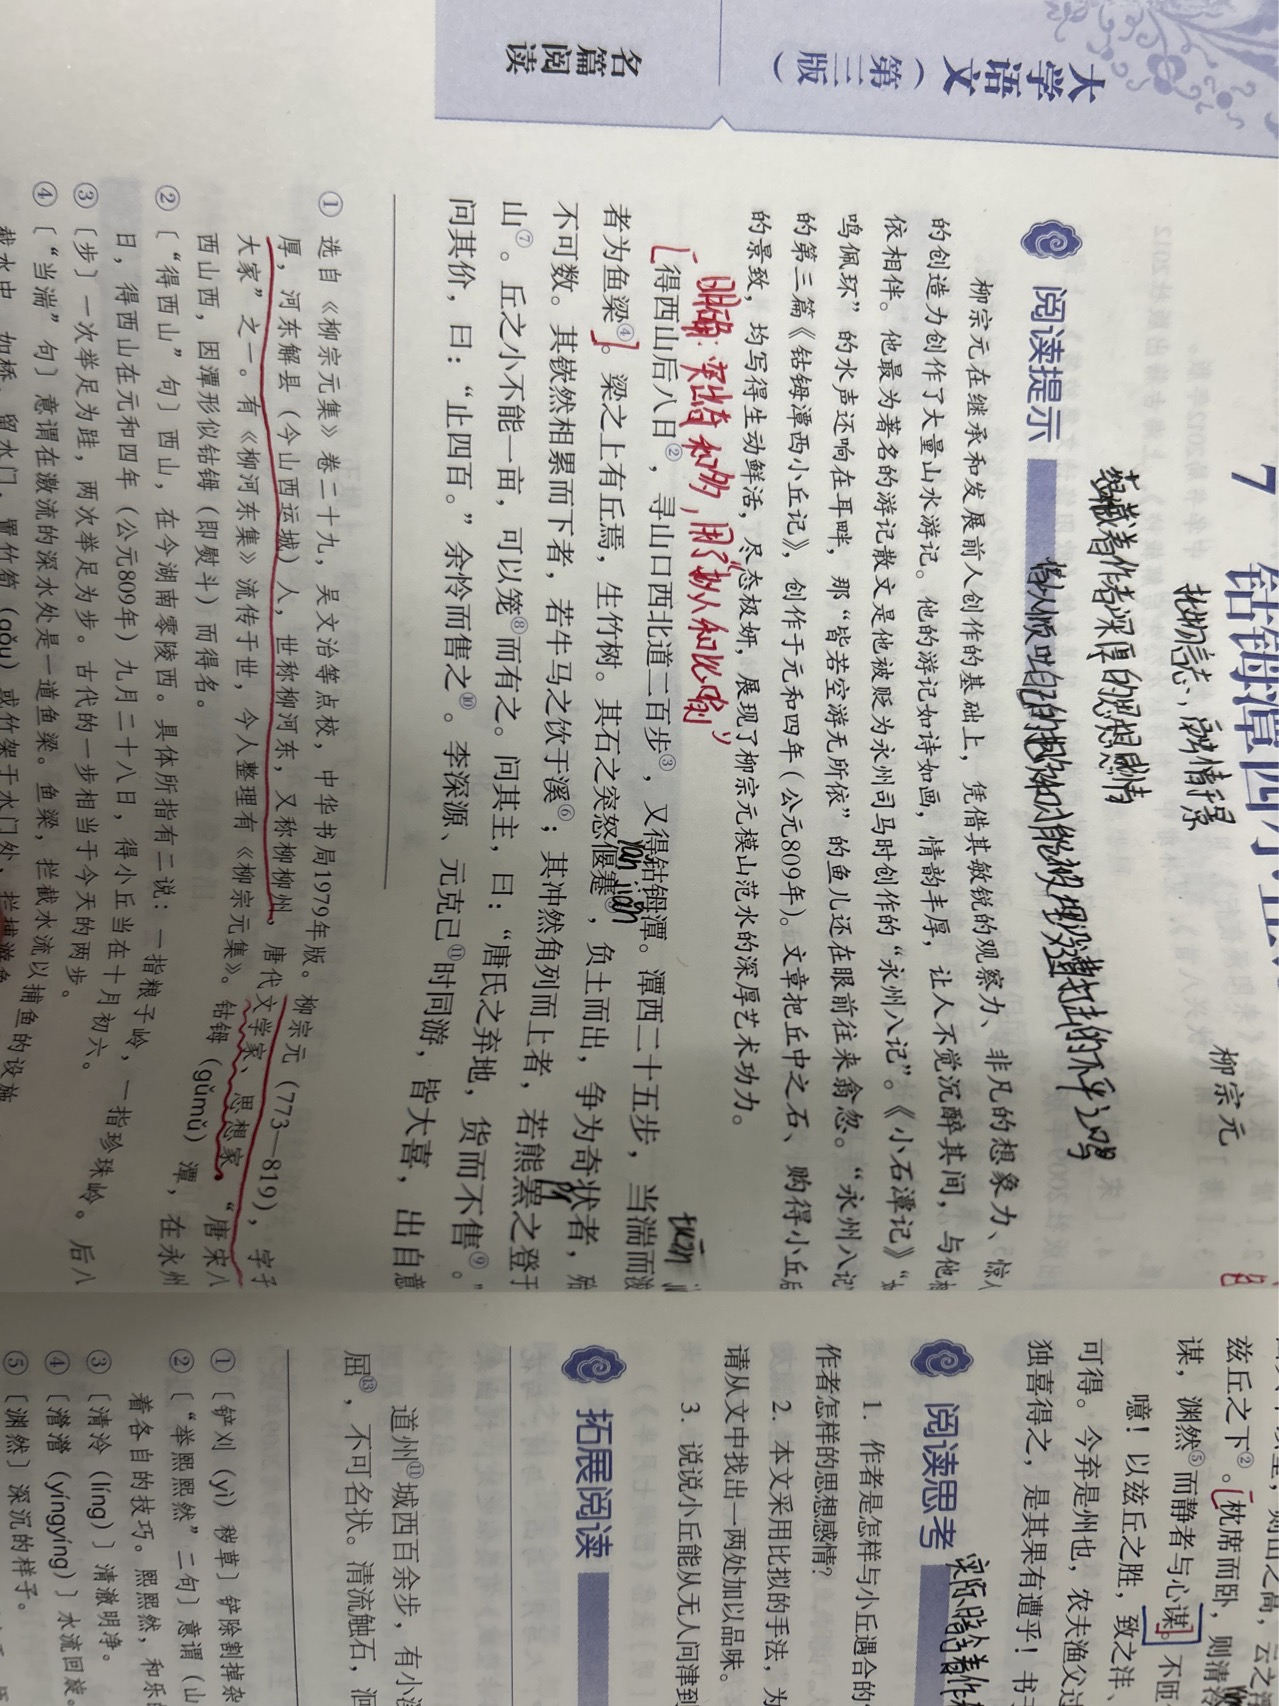 大学语文（第三版）
名篇阅读
7 钴鉧潭西小丘
柳宗元
托物言志、寓情于景
蕴藏着作者深厚的思想感情
阅读提示
柳宗元在继承和发展前人创作的基础上，凭借其敏锐的观察力、非凡的想象力、惊人
的创造力创作了大量山水游记。他的游记如诗如画，情韵丰厚，让人不觉沉醉其间，与他相
依相伴。他最为著名的游记散文是他被贬为永州司马时创作的“永州八记”。《小石潭记》“如
鸣佩环”的水声还响在耳畔，那“皆若空游无所依”的鱼儿还在眼前往来翕忽。“永州八记”
的第三篇《钴鉧潭西小丘记》，创作于元和四年（公元809年）。文章把丘中之石、购得小丘后
的景致，均写得生动鲜活，尽态极妍，展现了柳宗元模山范水的深厚艺术功力。
明确：突出奇和多，用了“拟人和比喻”
tuān
[得西山后八日②，寻山口西北道二百步③，又得钴鉧潭。潭西二十五步，当湍而浚
yǎn jiǎn
者为鱼梁④]。梁之上有丘焉，生竹树。其石之突怒偃蹇⑤，负土而出，争为奇状者，殆
不可数。其嵚然相累而下者，若牛马之饮于溪⑥；其冲然角列而上者，若熊罴之登于
pí
山⑦。丘之小不能一亩，可以笼⑧而有之。问其主，曰：“唐氏之弃地，货而不售⑨。”
问其价，曰：“止四百。”余怜而售之⑩。李深源、元克己⑪时同游，皆大喜，出自意
① 选自《柳宗元集》卷二十九，吴文治等点校，中华书局1979年版。柳宗元（773—819），字子
厚，河东解县（今山西运城）人，世称柳河东，又称柳柳州，唐代文学家、思想家，“唐宋八
大家”之一。有《柳河东集》流传于世，今人整理有《柳宗元集》。钴鉧（gǔmǔ）潭，在永州
西山西，因潭形似钴鉧（即熨斗）而得名。
② 〔“得西山”句〕西山，在今湖南零陵西。具体所指有二说：一指粮子岭，一指珍珠岭。后八
日，得西山在元和四年（公元809年）九月二十八日，得小丘当在十月初六。
③ 〔步〕一次举足为跬，两次举足为步。古代的一步相当于今天的两步。
④ 〔“当湍”句〕意谓在激流的深水处是一道鱼梁。鱼梁，拦截水流以捕鱼的设施
截水中，如桥，留水门，置竹笱（gǒu）或竹架于水门外，拦捕游鱼
兹丘之下②。[枕席而卧，则清泠
谋，渊然⑤而静者与心谋。]不匝
噫！以兹丘之胜，致之沣、
可得。今弃是州也，农夫渔父过
独喜得之，是其果有遭乎！书于
阅读思考
1. 作者是怎样与小丘遇合的
作者怎样的思想感情？
2. 本文采用比拟的手法，为
请从文中找出一两处加以品味。
3. 说说小丘能从无人问津到
拓展阅读
道州⑪城西百余步，有小溪
屈⑬，不可名状。清流触石，洄
① 〔铲刈（yì）秽草〕铲除割掉杂
② 〔“举熙熙然”二句〕意谓（山
着各自的技巧。熙熙然，和乐的
③ 〔清泠（líng）〕清澈明净。
④ 〔瀯瀯（yíngyíng）〕水流回旋。
⑤ 〔渊然〕深沉的样子。